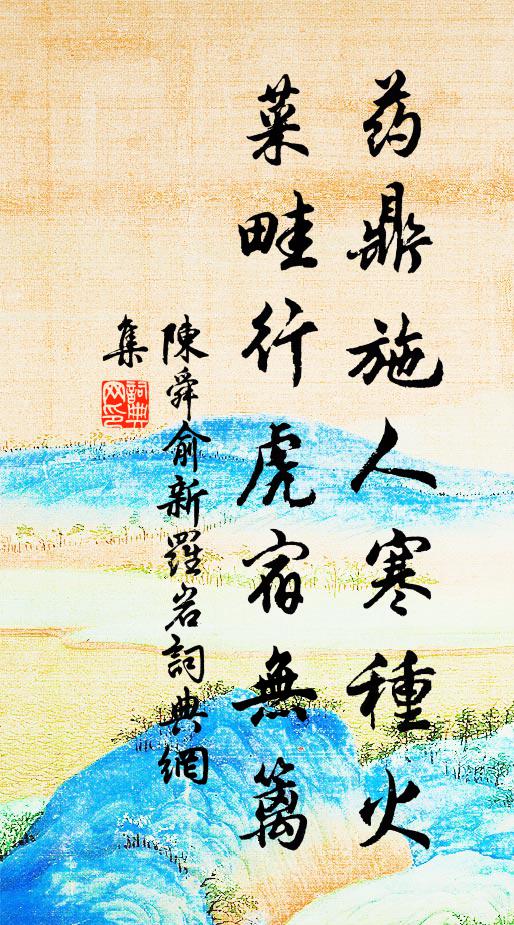 药鼎施人寒種火
菜畦行虎宿無篱
陳舜俞新羅岩詞典網
集
詞典网印